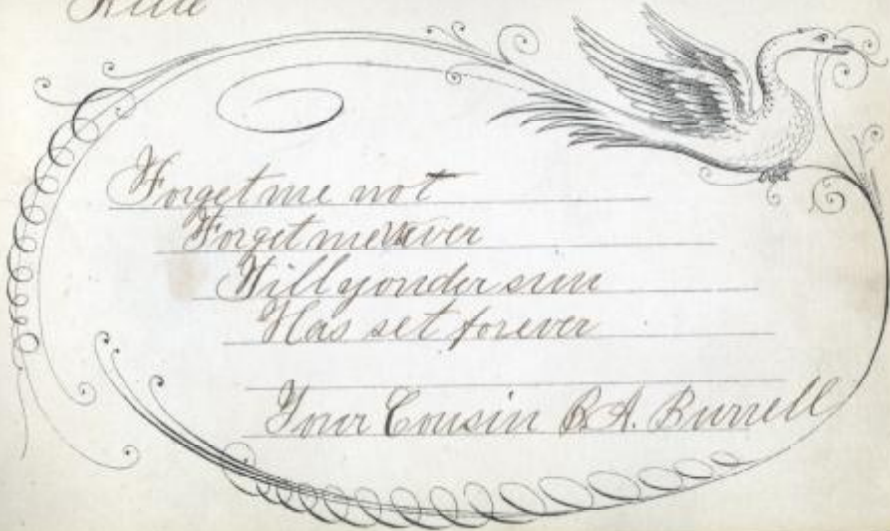 Forget me not
Forget me never
Till yonder sun
Has set forever
Your Cousin B.A. Burrell